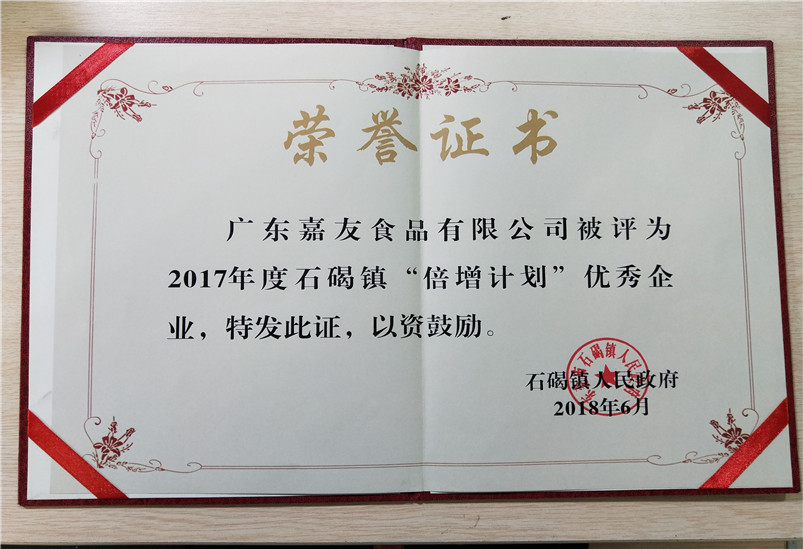 荣誉证书
广东嘉友食品有限公司被评为
2017年度石碣镇“倍增计划”优秀企
业，特发此证，以资鼓励。
石碣镇人民政府
2018年6月